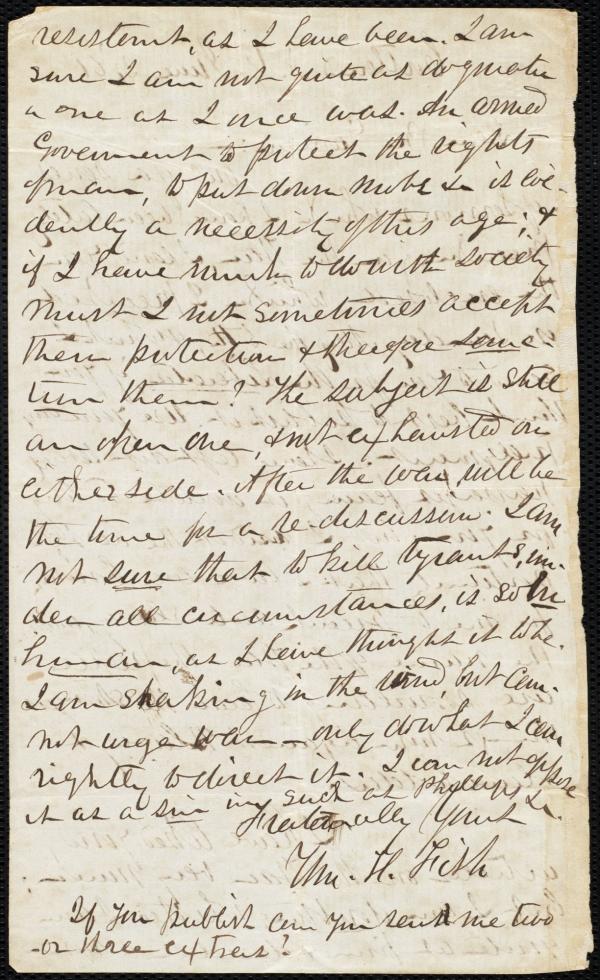 resistent, as I have been. I am
sure I am not quite as dogmatic
a one as I once was. An armed
Government to protect the rights
of man, to put down mobs &c is evi-
dently a necessity of this age; &
if I have much to do with society
must I not sometimes accept
their protection & therefore sanc-
tion them? The subject is still
an open one, & not exhausted on
either side. After the war will be
the time for a re-discussion. I am
not sure that to kill tyrants, un-
der all circumstances, is so in
human, as I have thought it to be.
I am shaking in the wind, but can-
not urge war – only do what I can
rightly to direct it. I can not oppose
it as a sin in such as Phillips &c.
Fraternally Yours
Wm. H. Fish
If you publish can you send me two
or three extras?